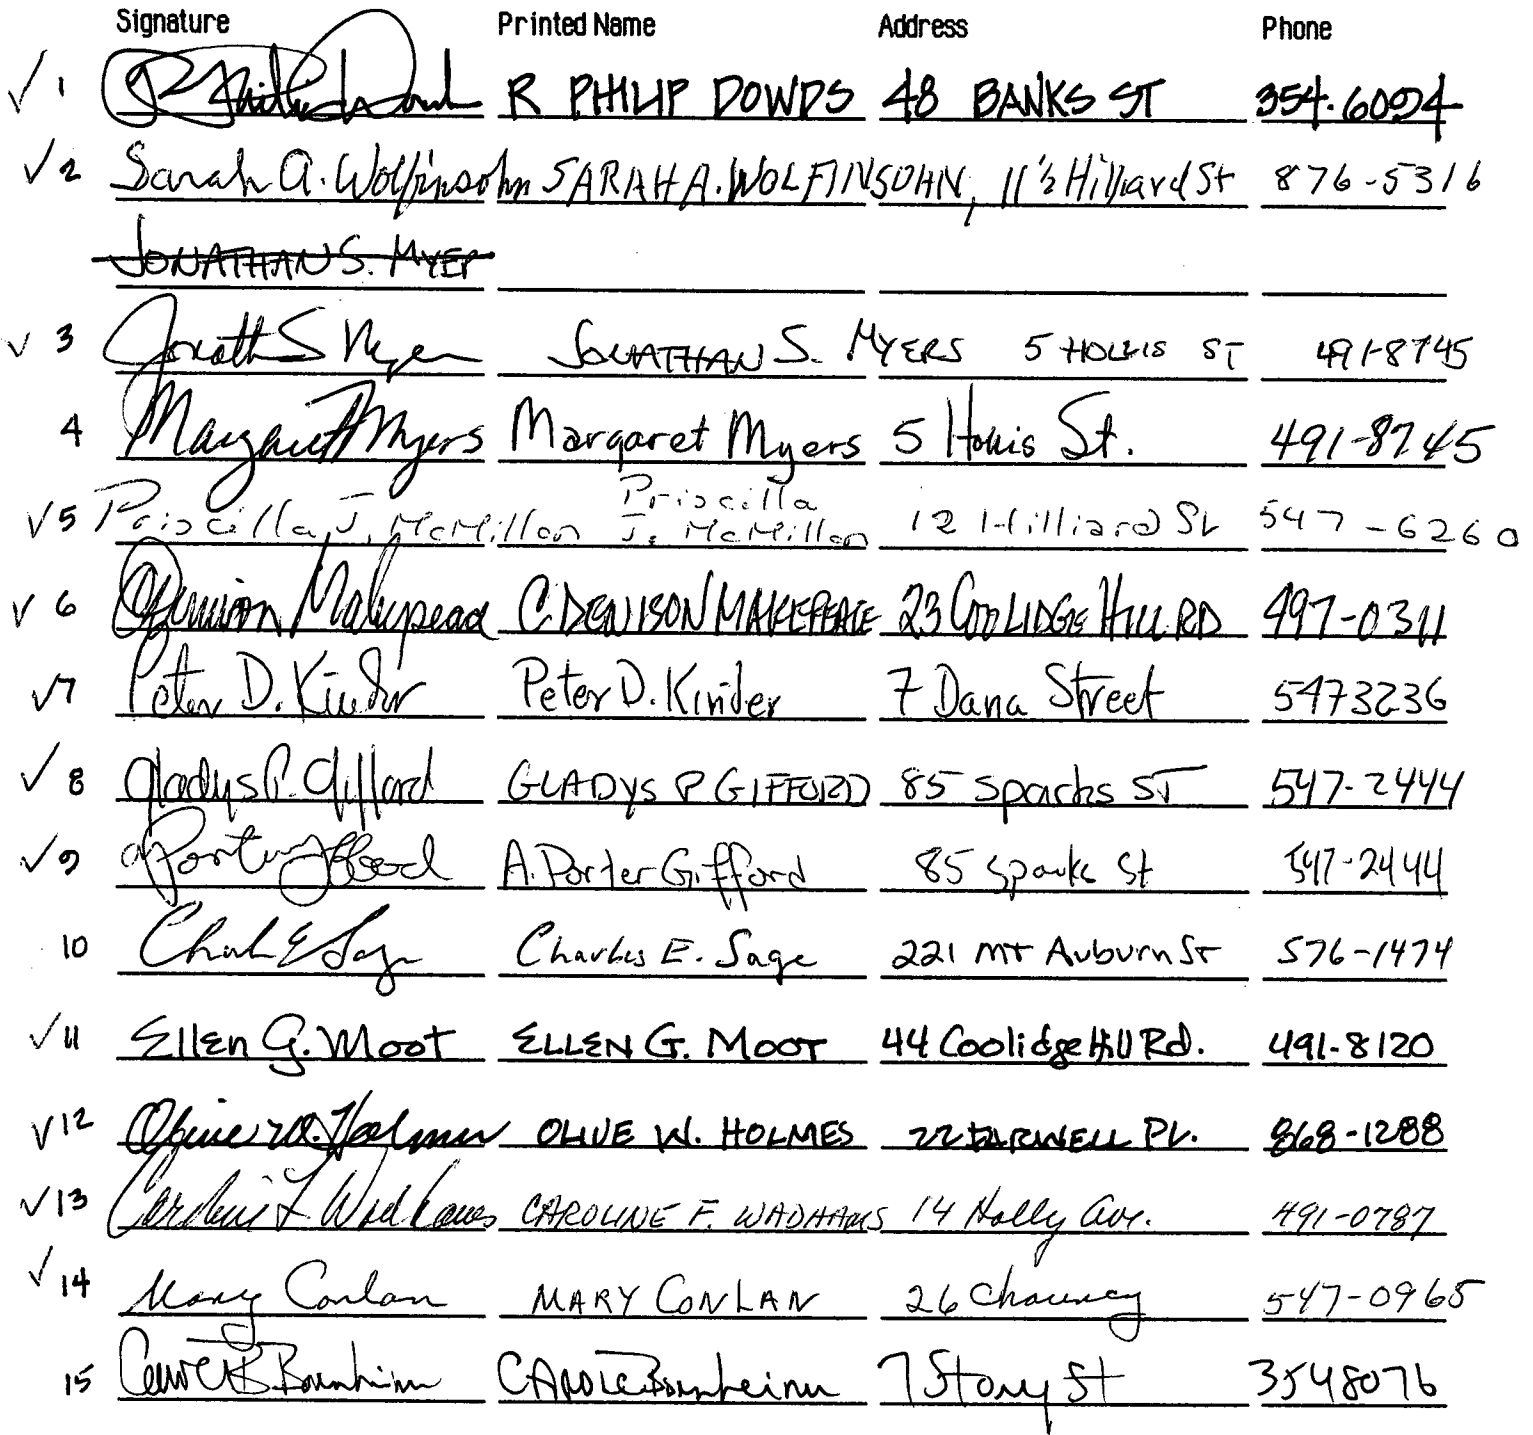 Signature Printed Name Address Phone
✓ 1 R PHILIP DOWDS 48 BANKS ST 354-6094
✓ 2 Sarah A. Wolfinsohn SARAH A. WOLFINSOHN, 11½ Hilliard St 876-5316
JONATHAN S. MYER
✓ 3 Jonathan S Myers JONATHAN S. MYERS 5 HOLLIS ST 491-8745
4 Margaret Myers Margaret Myers 5 Hollis St. 491-8745
✓ 5 Priscilla J. McMillan Priscilla J. McMillan 12 Hilliard St 547-6260
✓ 6 C Denison Makepeace C. DENISON MAKEPEACE 23 COOLIDGE HILL RD 497-0311
✓ 7 Peter D. Kinder Peter D. Kinder 7 Dana Street 5473236
✓ 8 Gladys P. Gifford GLADYS P GIFFORD 85 Sparks ST 547-2444
✓ 9 A Porter Gifford A. Porter Gifford 85 Sparks St 547-2444
10 Charles E Sage Charles E. Sage 221 MT Auburn ST 576-1474
✓ 11 Ellen G. Moot ELLEN G. MOOT 44 Coolidge Hill Rd. 491-8120
✓ 12 Olive W. Holmes OLIVE W. HOLMES 22 FARWELL PL. 868-1288
✓ 13 Caroline F Wadhams CAROLINE F. WADHAMS 14 Holly Ave. 491-0787
✓ 14 Mary Conlan MARY CONLAN 26 Chauncy 547-0965
15 Carole Bornheim 7 Story St 3548076